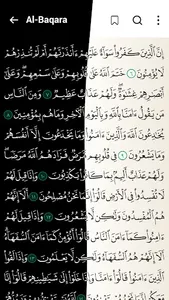 Al-Baqara
إِنَّ ٱلَّذِينَ كَفَرُوا۟ سَوَآءٌ عَلَيْهِمْ ءَأَنذَرْتَهُمْ أَمْ لَمْ تُنذِرْهُمْ
لَا يُؤْمِنُونَ ٦ خَتَمَ ٱللَّهُ عَلَىٰ قُلُوبِهِمْ وَعَلَىٰ سَمْعِهِمْ وَعَلَىٰٓ
أَبْصَٰرِهِمْ غِشَٰوَةٌ وَلَهُمْ عَذَابٌ عَظِيمٌ ٧ وَمِنَ ٱلنَّاسِ
مَن يَقُولُ ءَامَنَّا بِٱللَّهِ وَبِٱلْيَوْمِ ٱلْءَاخِرِ وَمَا هُم بِمُؤْمِنِينَ ٨
يُخَٰدِعُونَ ٱللَّهَ وَٱلَّذِينَ ءَامَنُوا۟ وَمَا يَخْدَعُونَ إِلَّآ أَنفُسَهُمْ
وَمَا يَشْعُرُونَ ٩ فِى قُلُوبِهِم مَّرَضٌ فَزَادَهُمُ ٱللَّهُ مَرَضًا
وَلَهُمْ عَذَابٌ أَلِيمٌۢ بِمَا كَانُوا۟ يَكْذِبُونَ ١٠ وَإِذَا قِيلَ لَهُمْ
لَا تُفْسِدُوا۟ فِى ٱلْأَرْضِ قَالُوٓا۟ إِنَّمَا نَحْنُ مُصْلِحُونَ ١١
أَلَآ إِنَّهُمْ هُمُ ٱلْمُفْسِدُونَ وَلَٰكِن لَّا يَشْعُرُونَ ١٢ وَإِذَا قِيلَ لَهُمْ
ءَامِنُوا۟ كَمَآ ءَامَنَ ٱلنَّاسُ قَالُوٓا۟ أَنُؤْمِنُ كَمَآ ءَامَنَ ٱلسُّفَهَآءُ
أَلَآ إِنَّهُمْ هُمُ ٱلسُّفَهَآءُ وَلَٰكِن لَّا يَعْلَمُونَ ١٣ وَإِذَا لَقُوا۟
ٱلَّذِينَ ءَامَنُوا۟ قَالُوٓا۟ ءَامَنَّا وَإِذَا خَلَوْا۟ إِلَىٰ شَيَٰطِينِهِمْ قَالُوٓا۟